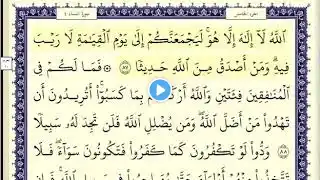 الجزء الخامس سورة النساء ٤
ٱللَّهُ لَآ إِلَٰهَ إِلَّا هُوَۚ لَيَجْمَعَنَّكُمْ إِلَىٰ يَوْمِ ٱلْقِيَٰمَةِ لَا رَيْبَ
فِيهِۗ وَمَنْ أَصْدَقُ مِنَ ٱللَّهِ حَدِيثًا ٨٧ ۞ فَمَا لَكُمْ فِى
ٱلْمُنَٰفِقِينَ فِئَتَيْنِ وَٱللَّهُ أَرْكَسَهُم بِمَا كَسَبُوٓا۟ۚ أَتُرِيدُونَ أَن
تَهْدُوا۟ مَنْ أَضَلَّ ٱللَّهُۖ وَمَن يُضْلِلِ ٱللَّهُ فَلَن تَجِدَ لَهُۥ سَبِيلًا
٨٨ وَدُّوا۟ لَوْ تَكْفُرُونَ كَمَا كَفَرُوا۟ فَتَكُونُونَ سَوَآءًۖ فَلَا